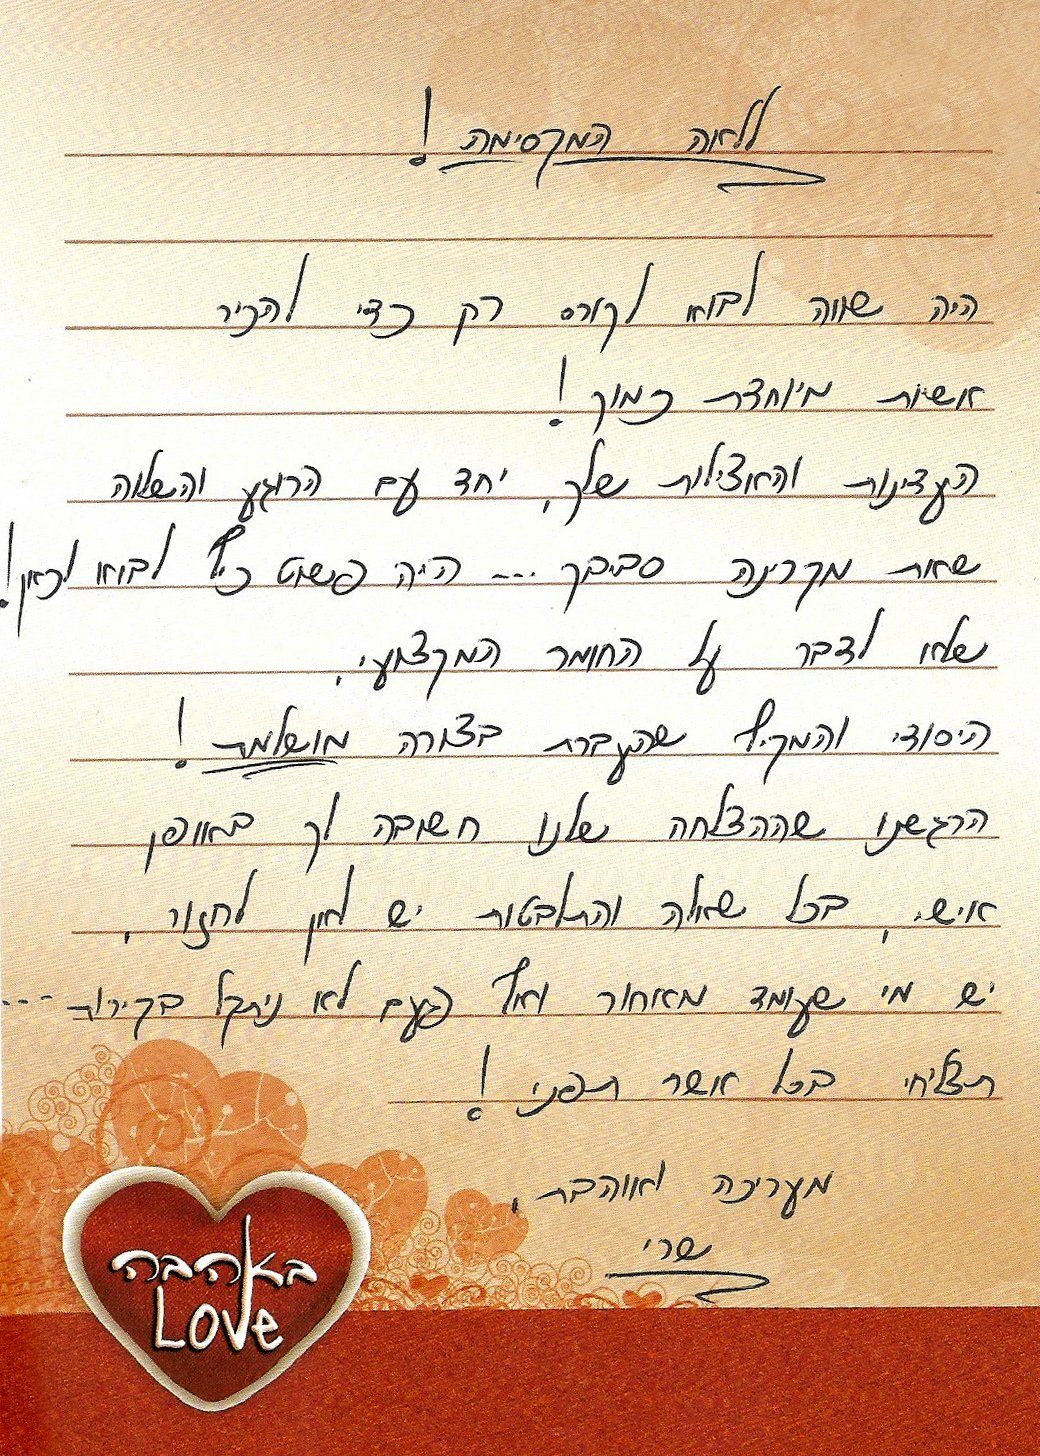 ללאה המקסימה!
היה שווה לבוא לקורס רק כדי להכיר
אשיות מיוחדת כמוך!
העדינות והאצילות שלך, יחד עם הרוגע והשלוה
שאת מקרינה סביבך --- היה פשוט כיף לבוא לכאן!
שלא לדבר על החומר המקצועי,
היסודי והמקיף שהעברת בצורה מושלמת!
הרגשנו שההצלחה שלנו חשובה לך באופן
אישי, בכל שאלה והתלבטות יש לאן לחזור,
יש מי שעומד מאחור ואף פעם לא ניתקל בקירות ---
תצליחי בכל אשר תפני!
מעריכה ואוהבת,
שרי
באהבה
Love